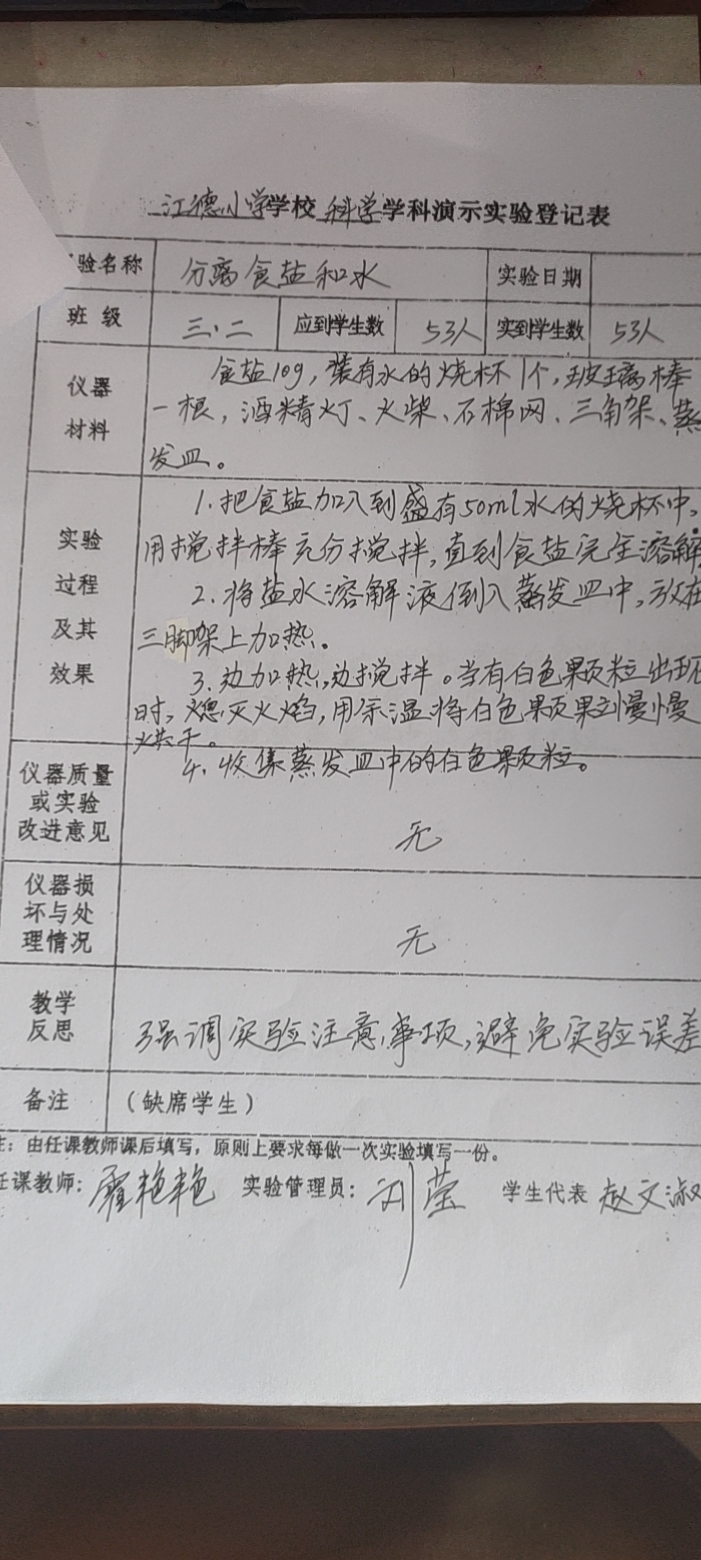 江德小学学校 科学学科演示实验登记表
验名称 分离食盐和水 实验日期
班级 三.二 应到学生数 53人 实到学生数 53人
仪器
材料
食盐10g，装有水的烧杯1个，玻璃棒
一根，酒精灯、火柴、石棉网、三角架、蒸
发皿。
实验
过程
及其
效果
1.把食盐加入到盛有50ml水的烧杯中，
用搅拌棒充分搅拌，直到食盐完全溶解
2.将盐水溶解液倒入蒸发皿中，放在
三脚架上加热。
3.边加热，边搅拌。当有白色颗粒出现
时，熄灭火焰，用余温将白色颗粒慢慢
烘干。
4.收集蒸发皿中的白色颗粒。
仪器质量
或实验
改进意见
无
仪器损
坏与处
理情况
无
教学
反思
强调实验注意事项，避免实验误差
备注 （缺席学生）
注：由任课教师课后填写，原则上要求每做一次实验填写一份。
任课教师：霍艳艳 实验管理员：刘莹 学生代表 赵文淑